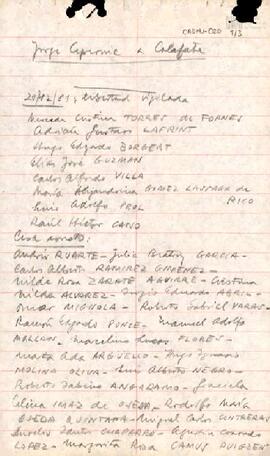 CADHU-C20 1/3
Jorge Cipriano a Calafate
29/12/81, libertad vigilada
Cristina TORRES de FORNES
Adrian Gustavo LAFRINT
Hugo Edgardo BORGERT
Elias José GUZMAN
Carlos Alfredo VILLA
María Alejandrina GOMEZ de
RICO
Luis Adolfo PROL
Raúl Héctor CANO
Cese arresto:
Andrés RUARTE - Julia Beatriz GARCIA -
Carlos Alberto RAMIREZ GIMENEZ -
Nilda Rosa ZARATE AGUIRRE - Cristina
Nilda ALVAREZ - Sergio Eduardo
Omar MIGNOLA - Roberto Gabriel VARAS -
Ramón Edgardo PONCE - Manuel Adolfo
- Marcelino FLORES -
Marta Ada ARGUELLO - Hugo Ignacio
MOLINO OLIVA - Luis Alberto NEGRO -
Roberto Sabino ANGARAMO - Graciela
Elina IMAZ de OJEDA - Rodolfo María
OJEDA QUINTANA - Miguel Carlos CONTRERAS
Aurelio Santos CHAPARRO -
LOPEZ - Margarita Rosa CAMUS